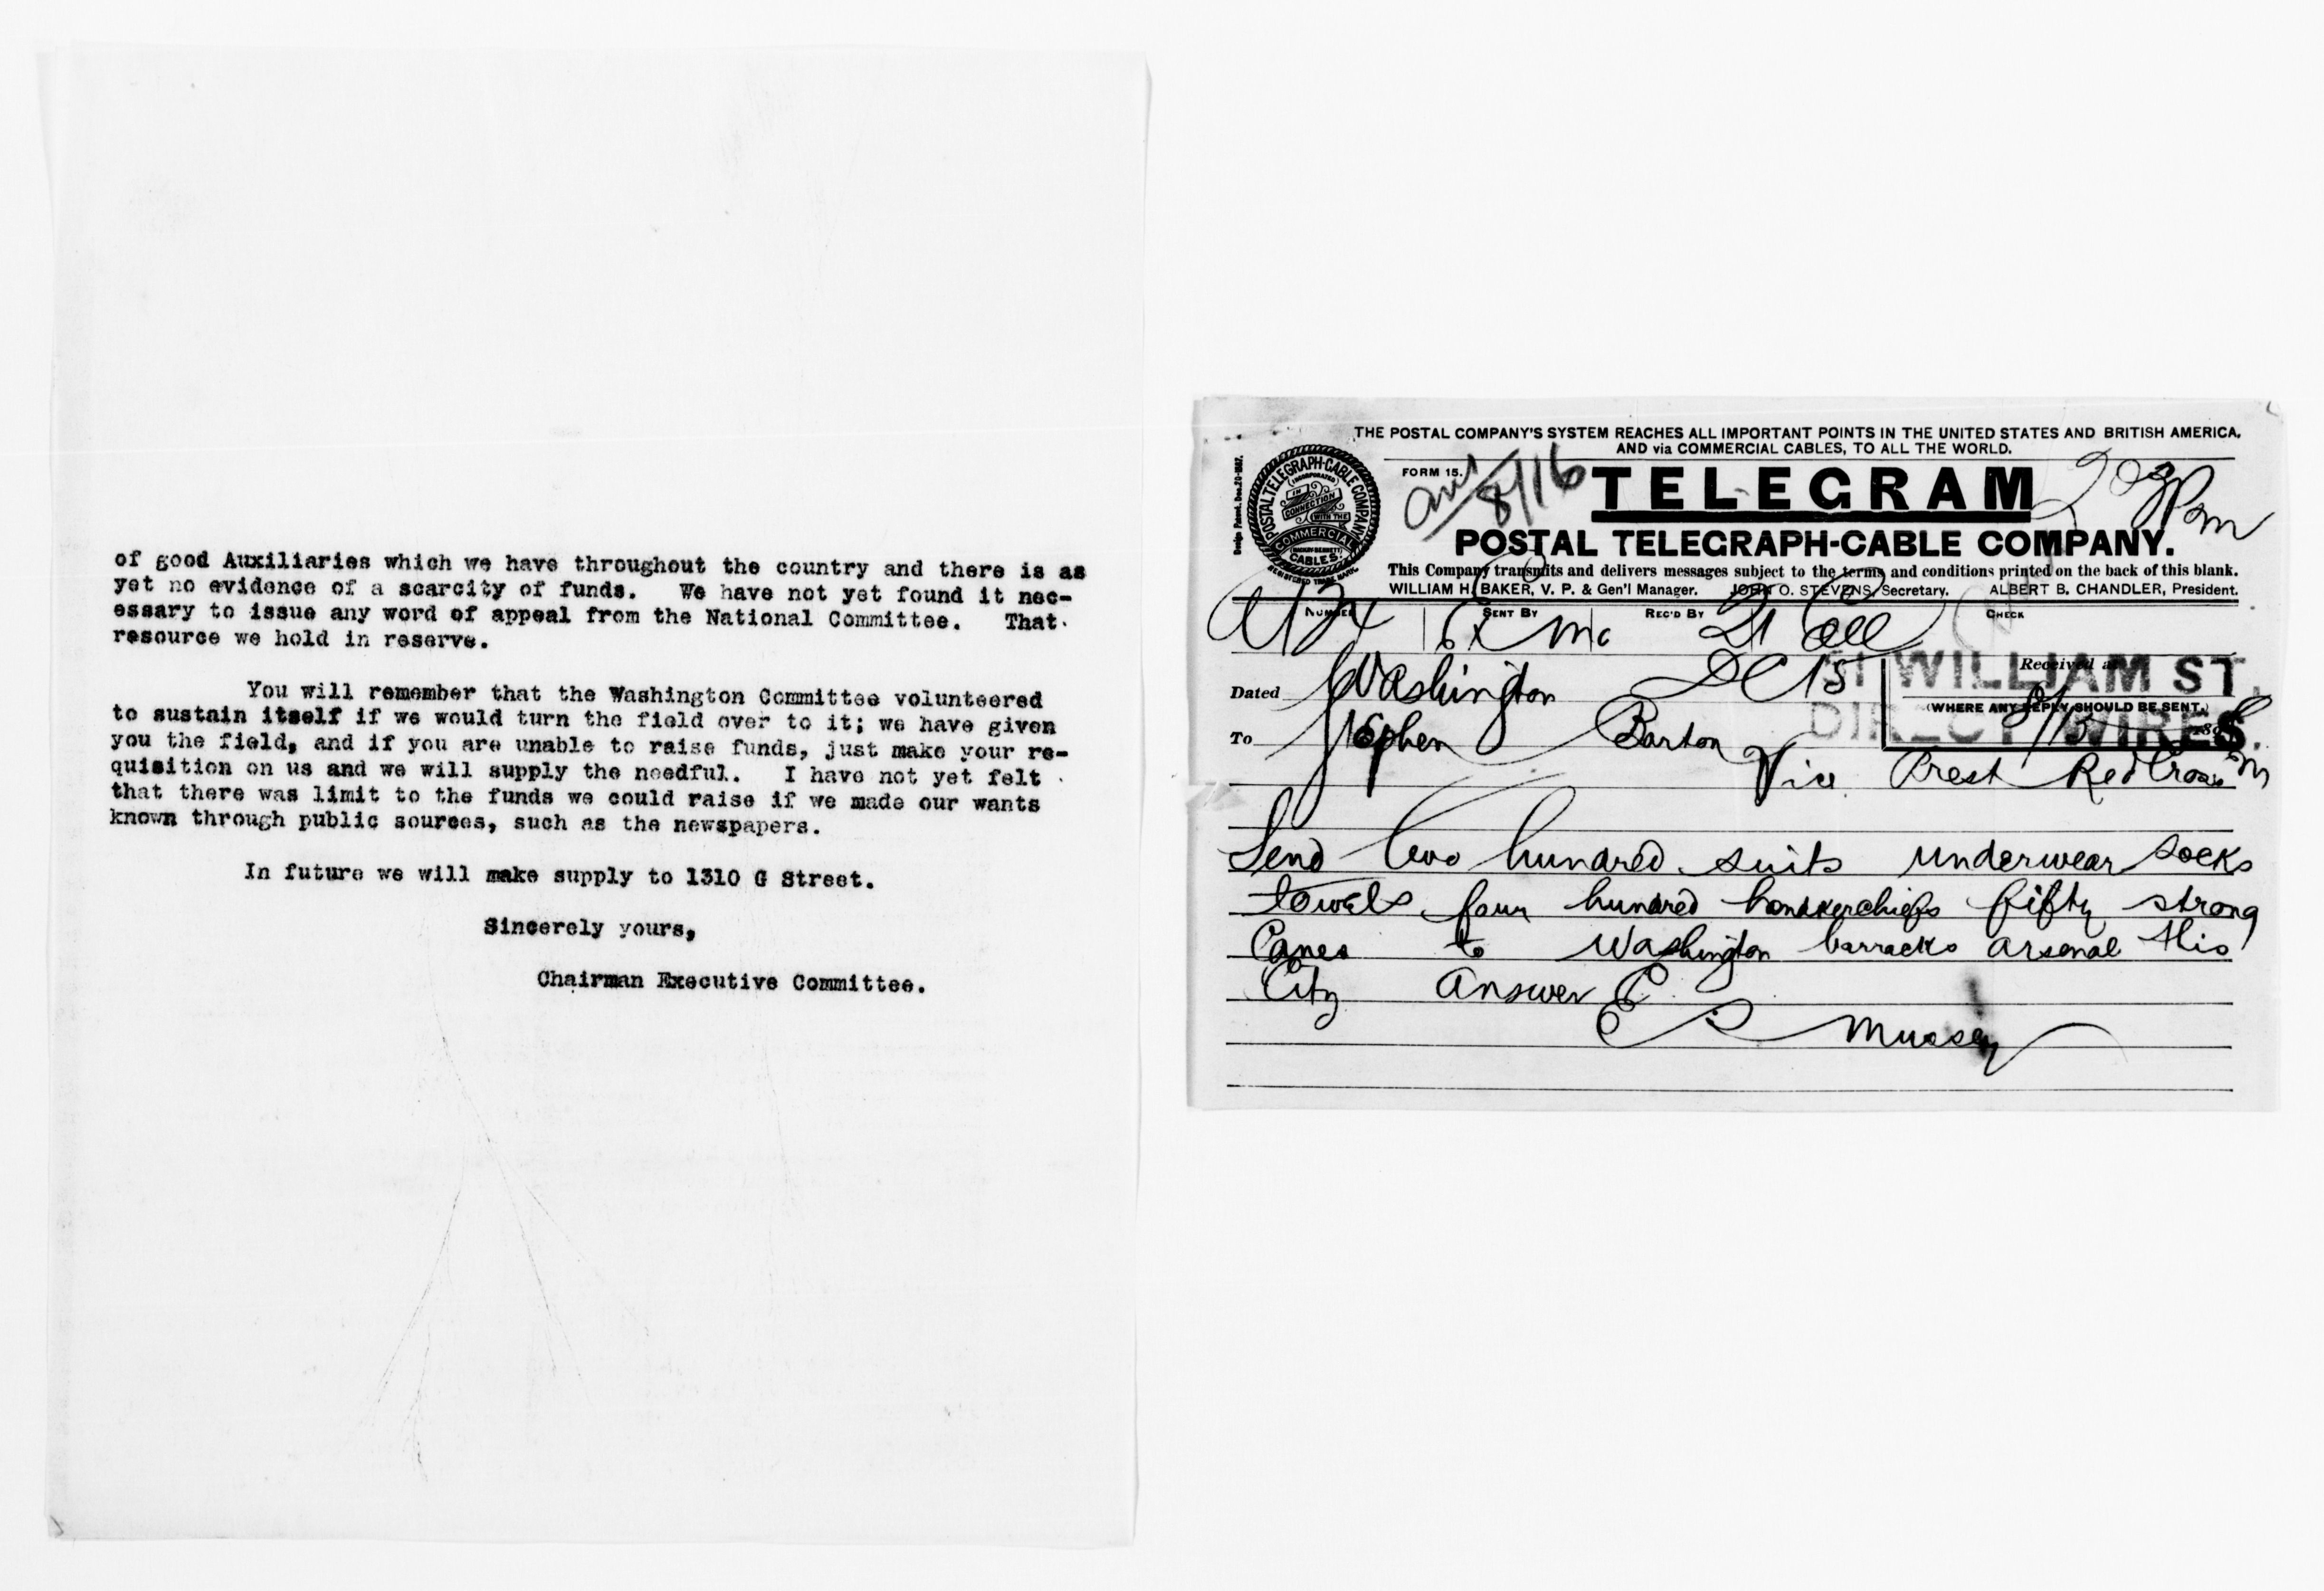 of good Auxiliaries which we have throughout the country and there is as
yet no evidence of a scarcity of funds. We have not yet found it nec-
essary to issue any word of appeal from the National Committee. That
resource we hold in reserve.
You will remember that the Washington Committee volunteered
to sustain itself if we would turn the field over to it; we have given
you the field, and if you are unable to raise funds, just make your re-
quisition on us and we will supply the needful. I have not yet felt
that there was limit to the funds we could raise if we made our wants
known through public sources, such as the newspapers.
In future we will make supply to 1310 G Street.
Sincerely yours,
Chairman Executive Committee.
THE POSTAL COMPANY'S SYSTEM REACHES ALL IMPORTANT POINTS IN THE UNITED STATES AND BRITISH AMERICA,
AND via COMMERCIAL CABLES, TO ALL THE WORLD.
Design Patent.
POSTAL TELEGRAPH-CABLE COMPANY
(INCORPORATED)
IN
CONNECTION
WITH THE
(MACKAY-BENNETT)
COMMERCIAL
CABLES.
REGISTERED TRADE MARK.
FORM 15.
8/16
TELEGRAM
Pm
POSTAL TELEGRAPH-CABLE COMPANY.
This Company transmits and delivers messages subject to the terms and conditions printed on the back of this blank.
WILLIAM H. BAKER, V. P. & Gen'l Manager. JOHN O. STEVENS, Secretary. ALBERT B. CHANDLER, President.
NUMBER SENT BY REC'D BY CHECK
Dated Washington DC 15
WILLIAM ST.
DIRECT WIRES.
Received at
(WHERE ANY REPLY SHOULD BE SENT.)
To Stephen Barton
Vice Prest Red Cross
Send two hundred suits underwear socks
towels four hundred handkerchiefs fifty strong
Canes to Washington barracks arsenal this
City Answer
E S Mussey